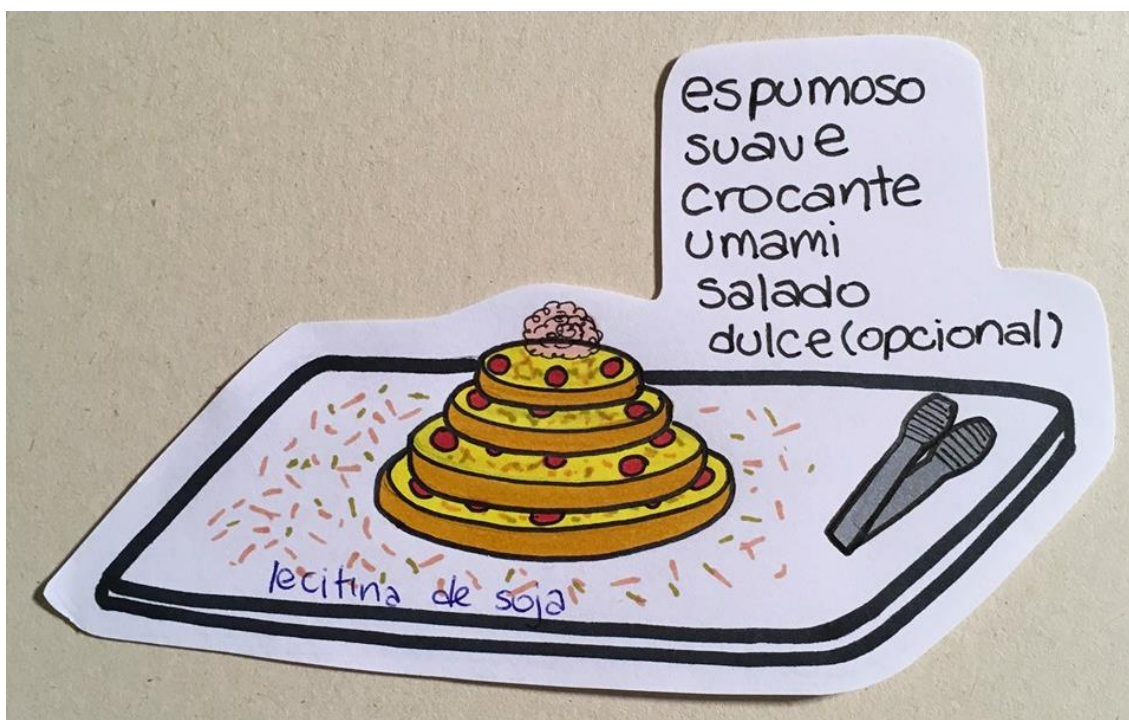 espumoso
suave
crocante
umami
salado
dulce (opcional)
lecitina de soja